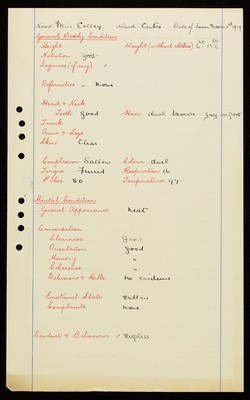 Name Miss Colley Ward Centre Date of
General Bodily Condition
Height Weight (without clothes)
Nutrition good
Injuries (if any)
Deformities " None
Head & Neck
Teeth good Hair dark brown - gray in front
Trunk
Arms & Legs
Skin Clear
Complexion Sallow Colour dull
Tongue Furred Respiration 16
Pulse 80 Temperature 97
Mental Condition
General Appearance Neat
Conversation
Clearness Good
Orientation Good
Memory "
Coherence "
Delusions & Halls No evidence
Emotional State Sullen
Complaints None
Conduct & Behaviour Sleepless